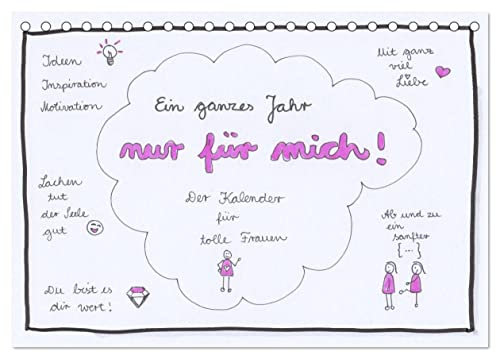 Ideen
Inspiration
Motivation
Mit ganz
viel
Liebe
Ein ganzes Jahr
nur für mich!
Der Kalender
für
tolle Frauen
Lachen
tut
der Seele
gut
Ab und zu
ein
sanfter
[...]
Du bist es
dir wert!